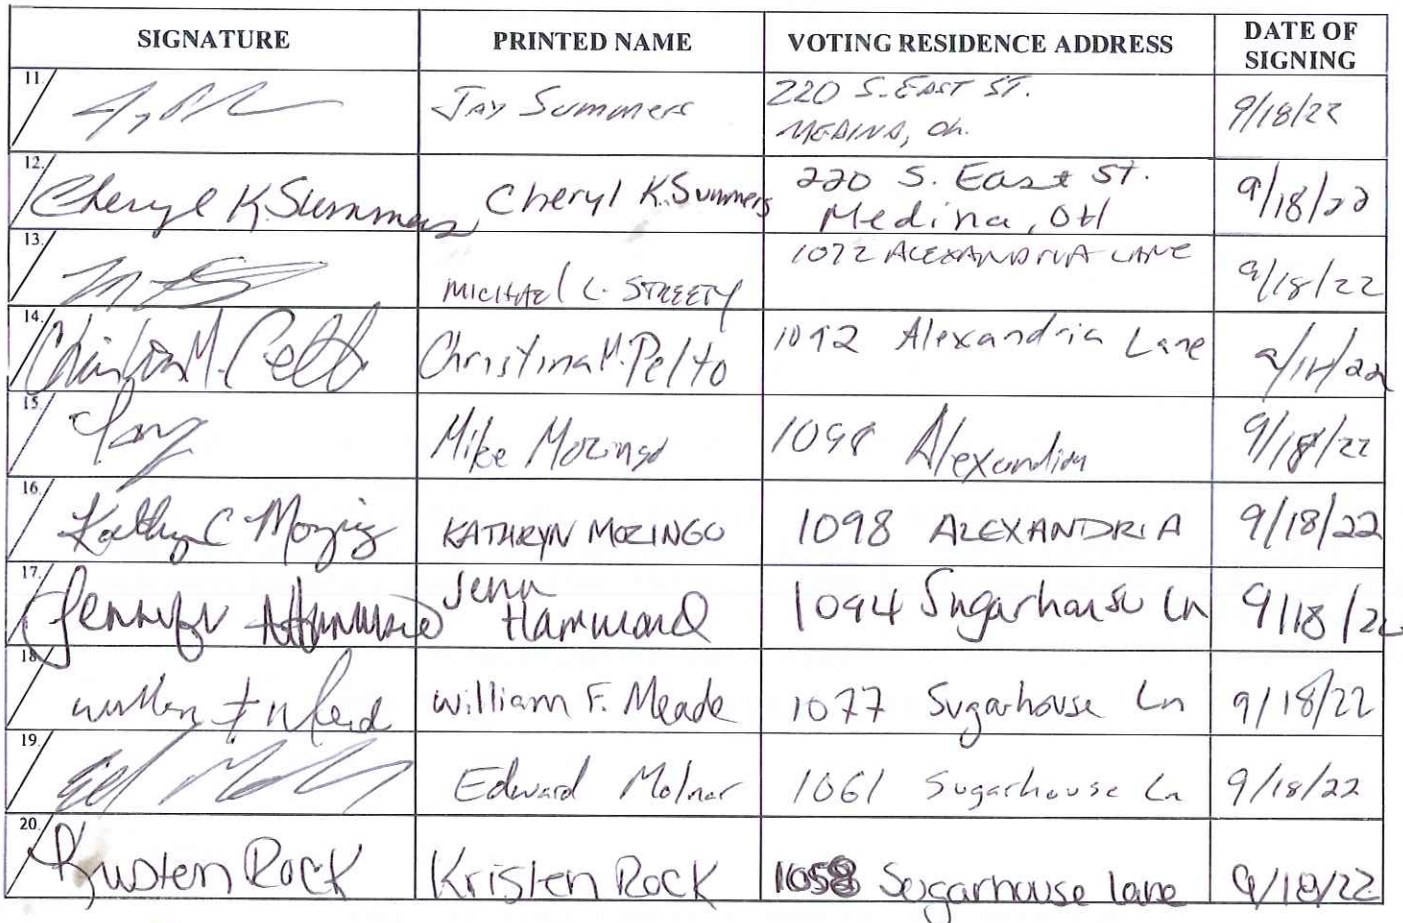 SIGNATURE PRINTED NAME VOTING RESIDENCE ADDRESS DATE OF SIGNING
11. Jay Summers 220 S. EAST ST. 9/18/22
MEDINA, Oh.
12. Cheryl K. Summers Cheryl K. Summers 220 S. East St. 9/18/22
Medina, OH
13. MICHAEL L. STREETY 1072 ALEXANDRIA LANE 9/18/22
14. Christina M. Pelto Christina M. Pelto 1092 Alexandria Lane
15. Mike Mozingo 1098 Alexandria 9/18/22
16. Kathryn C Mozingo KATHRYN MOZINGO 1098 ALEXANDRIA 9/18/22
17. Jennifer Hammond Jenn 1094 Sugarhouse Ln 9/18/22
Hammond
18. William F Meade William F. Meade 1077 Sugarhouse Ln 9/18/22
19. Edward Molnar 1061 Sugarhouse Ln 9/18/22
20. Kristen Rock Kristen Rock 1058 Sugarhouse Lane 9/18/22